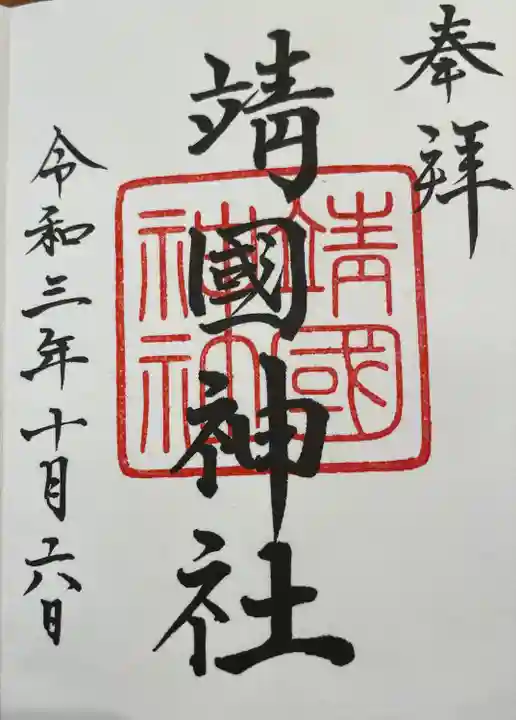 奉拜
靖國神社
靖國
神社
令和三年十月六日